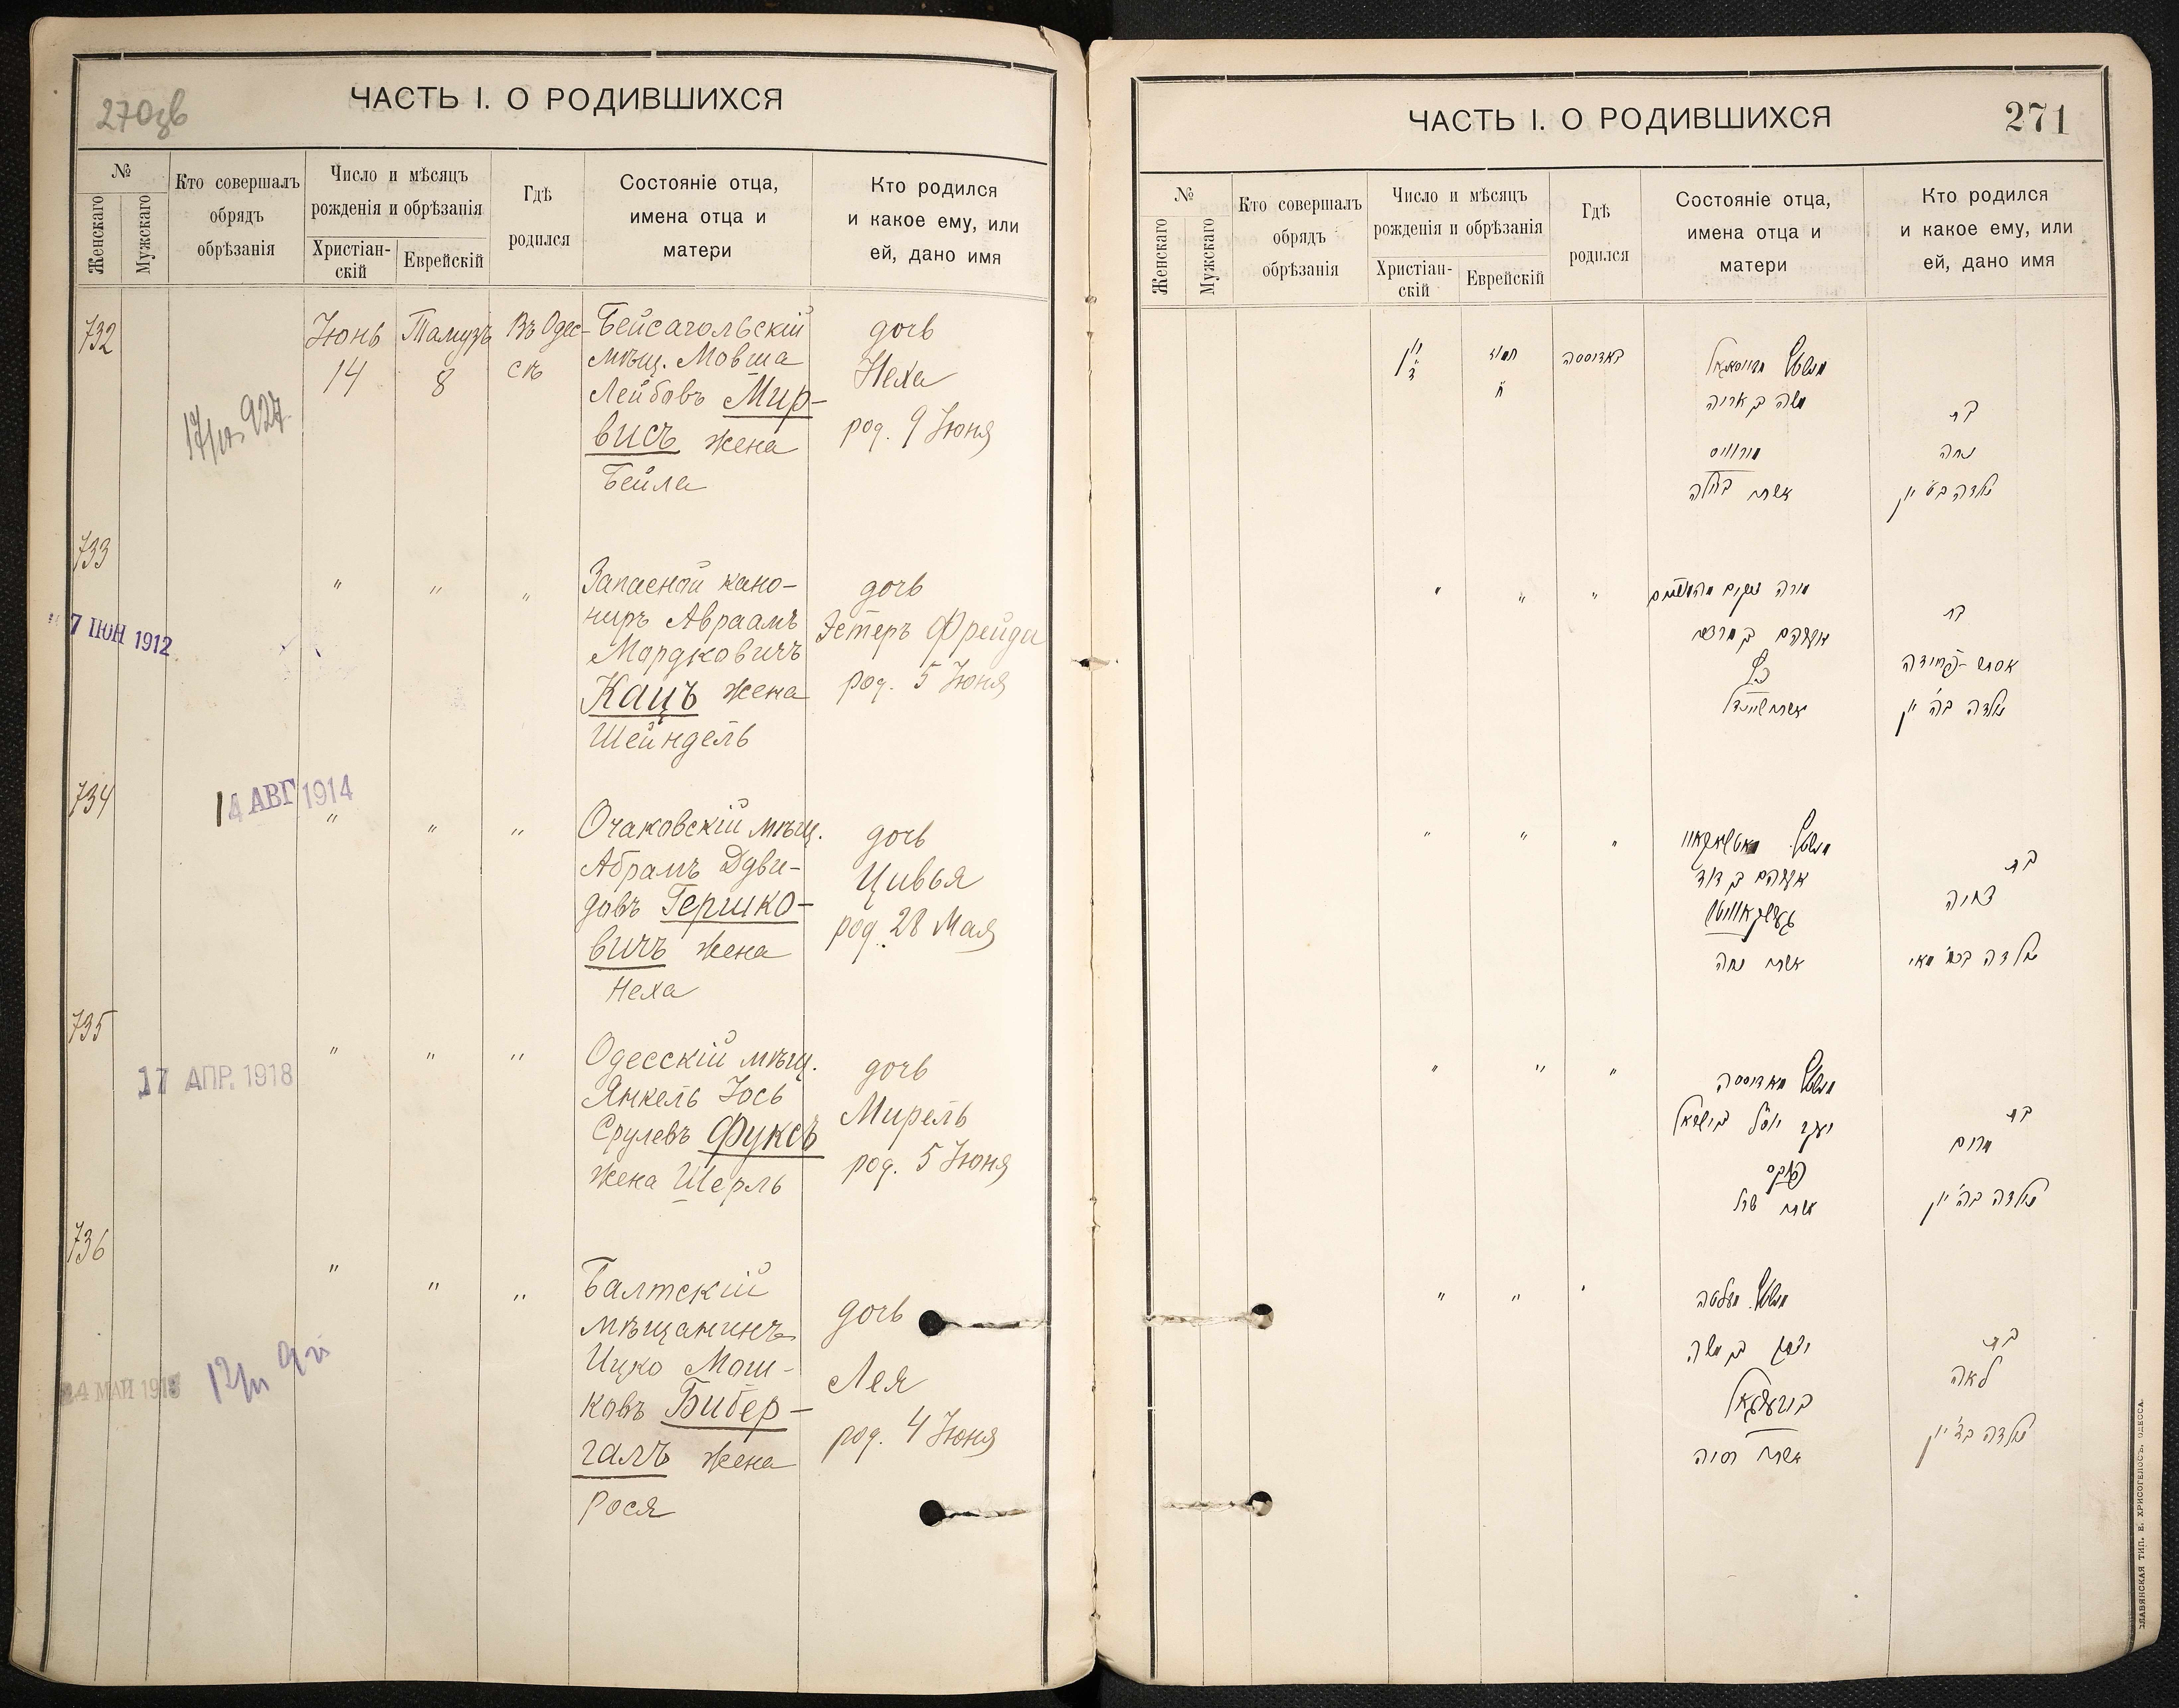 270зв
ЧАСТЬ I. О РОДИВШИХСЯ
№
Женскаго
Мужскаго
Кто совершалъ
обрядъ
обрѣзанія
Число и мѣсяцъ
рожденія и обрѣзанія
Христіан-
скій
Еврейскій
Гдѣ
родился
Состояніе отца,
имена отца и
матери
Кто родился
и какое ему, или
ей, дано имя
732
Іюнь
14
Тамузъ
8
Въ Одес-
сѣ
Бейсагольскій
мѣщ. Мовша
Лейбовъ Мир-
висъ жена
Бейла
дочь
Неха
род. 9 Іюня
733
7 ІЮН 1912
" " "
Запасной кано-
ниръ Авраамъ
Мордковичъ
Кацъ жена
Шейндель
дочь
Эстеръ Фрейда
род. 5 Іюня
734
14 АВГ 1914
" " "
Очаковскій мѣщ.
Абрамъ Дуви-
довъ Гершко-
вичъ жена
Неха
дочь
Цивья
род. 28 Мая
735
17 АПР. 1918
" " "
Одесскій мѣщ.
Янкель Іось
Срулевъ Фуксъ
жена Шерль
дочь
Мирель
род. 5 Іюня
736
" " "
Балтскій
мѣщанинъ
Ицко Мош-
ковъ Бибер-
галъ жена
Рося
дочь
Лея
род. 4 Іюня
ЧАСТЬ I. О РОДИВШИХСЯ
271
№
Женскаго
Мужскаго
Кто совершалъ
обрядъ
обрѣзанія
Число и мѣсяцъ
рожденія и обрѣзанія
Христіан-
скій
Еврейскій
Гдѣ
родился
Состояніе отца,
имена отца и
матери
Кто родился
и какое ему, или
ей, дано имя
תמוז
ח
באדוססה
משה ב אריה
מירוויס
אשתו ביילה
בת
נחה
נולדה בט' יון
" " "
אברהם ב מרדכי
כ"ץ
אשתו שיינדל
בת
אסתר פריידה
נולדה בה' יון
" " "
אברהם ב דוד
גערשקאוויטש
אשתו נחה
בת
צביה
נולדה בכח' מאי
" " "
מאדוססה
יעקב יוסף בישראל
פוקס
אשתו שרל
בת
מרים
נולדה בה' יון
" " "
מבלטה
יצחק ב משה
ביבערגאל
אשתו רסיה
בת
לאה
נולדה בד' יון
СЛАВЯНСКАЯ ТИП. Е. ХРИСОГЕЛОСЪ. ОДЕССА.